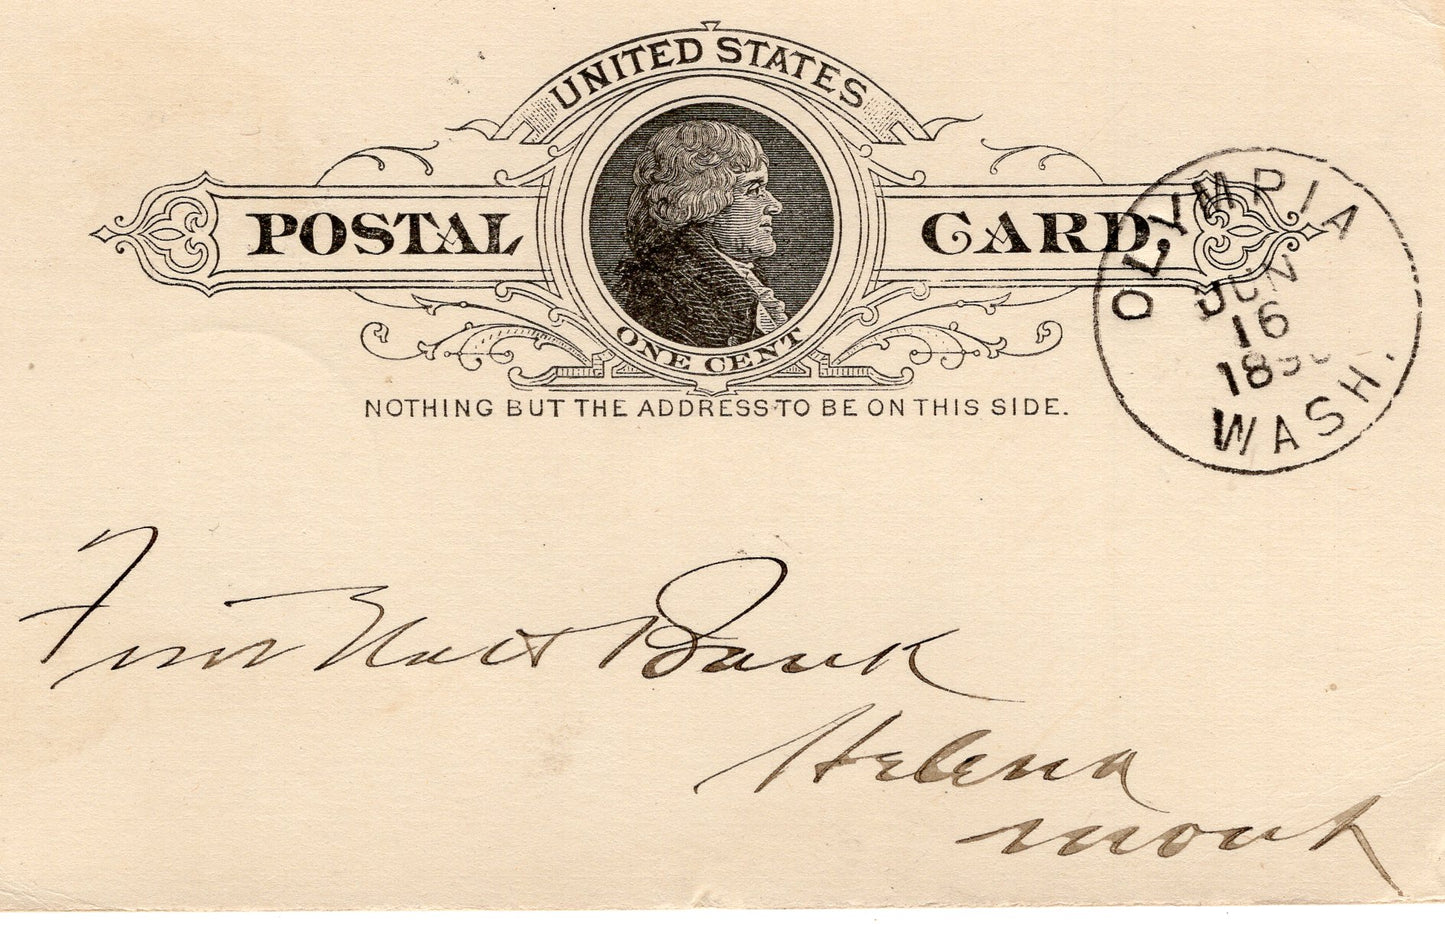 UNITED STATES
POSTAL CARD.
ONE CENT
NOTHING BUT THE ADDRESS TO BE ON THIS SIDE.
OLYMPIA
JUN
16
1890
WASH.
First Natl Bank
Helena
Mont